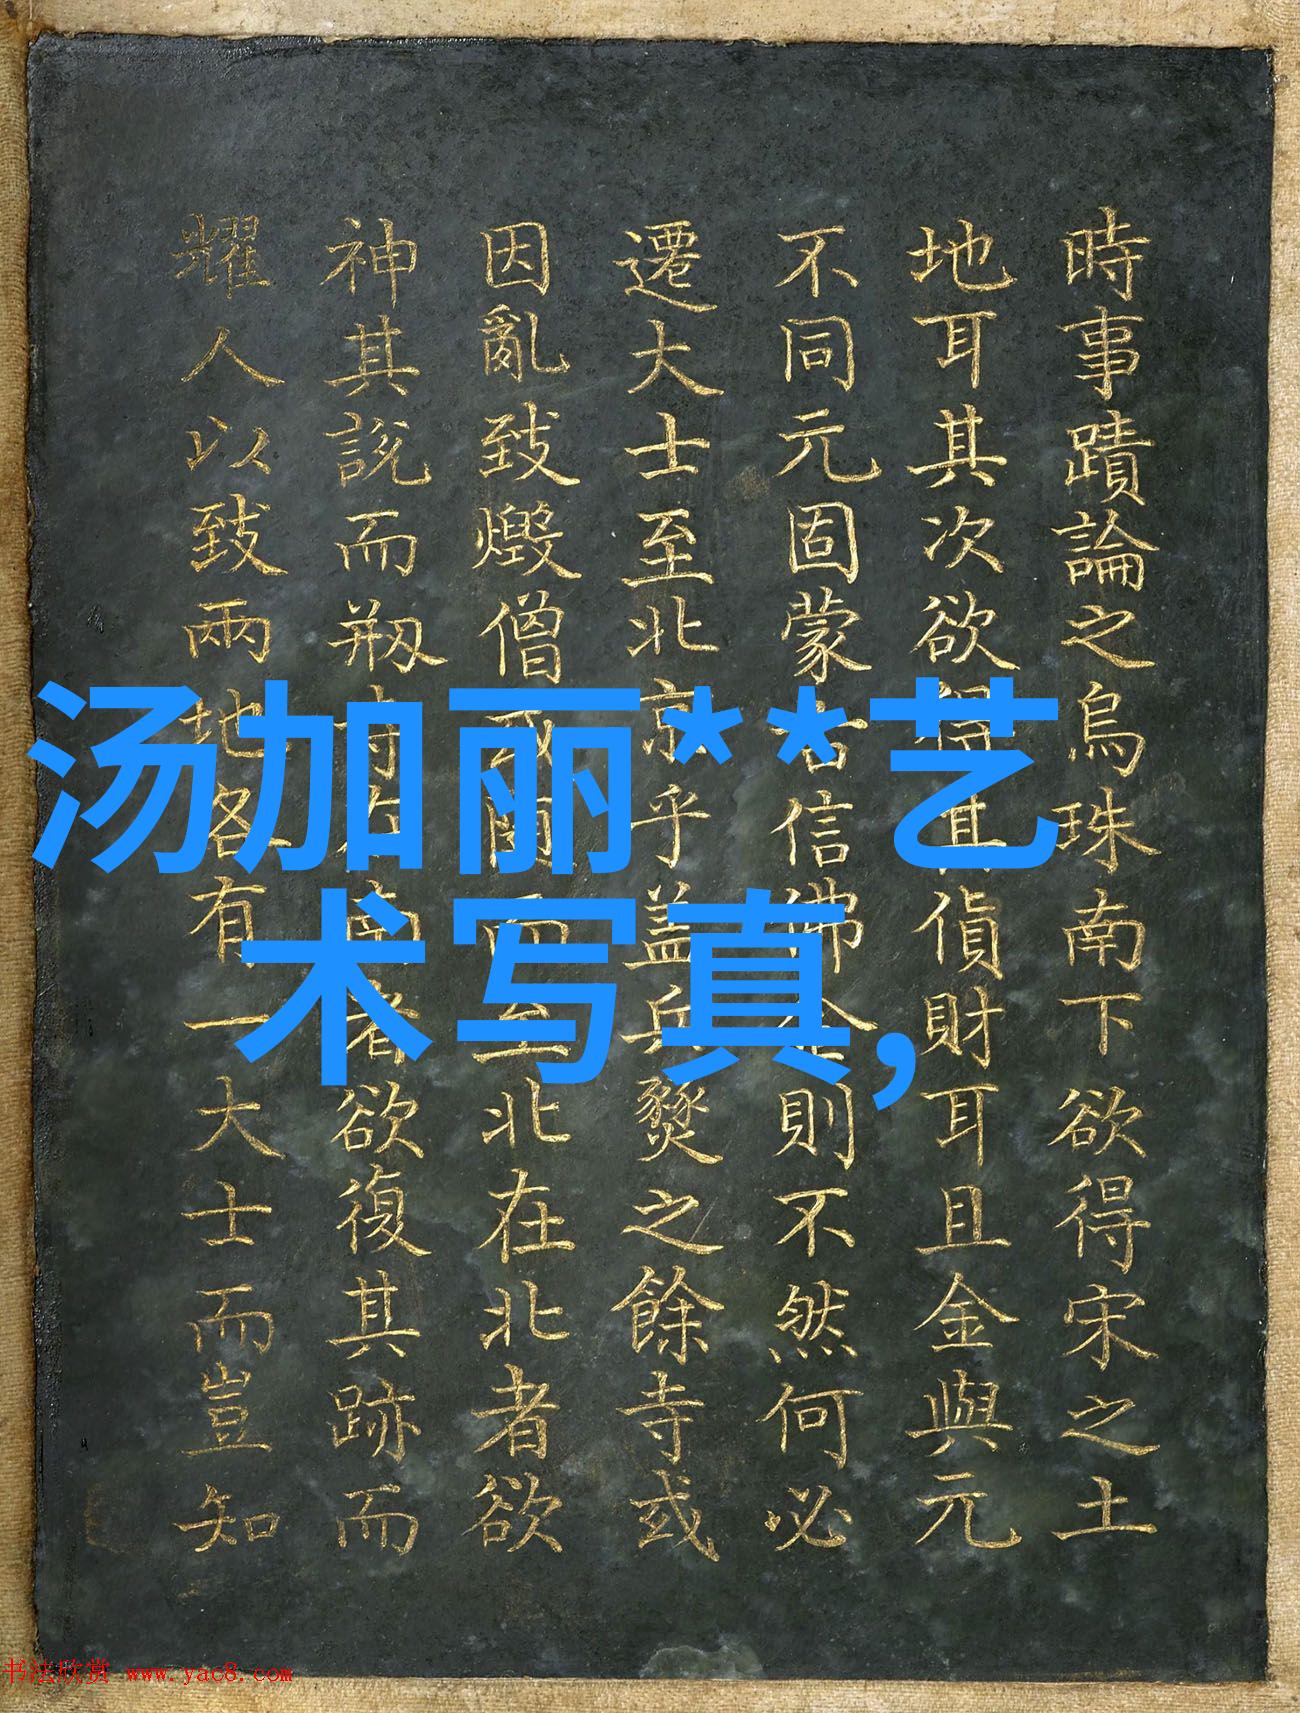 時事蹟論之烏珠南下欲得宋之土
地耳其次欲得其貨財耳且金與元
不同元固蒙古信佛金則不然何必
遷大士至北京乎蓋兵燹之餘寺或
因亂致燬僧或閧而至北在北者欲
神其說而刱在南者欲復其跡而
耀人以致兩地各有一大士而豈知
汤加丽**艺
术写真,
书法欣赏 www.yac8.com